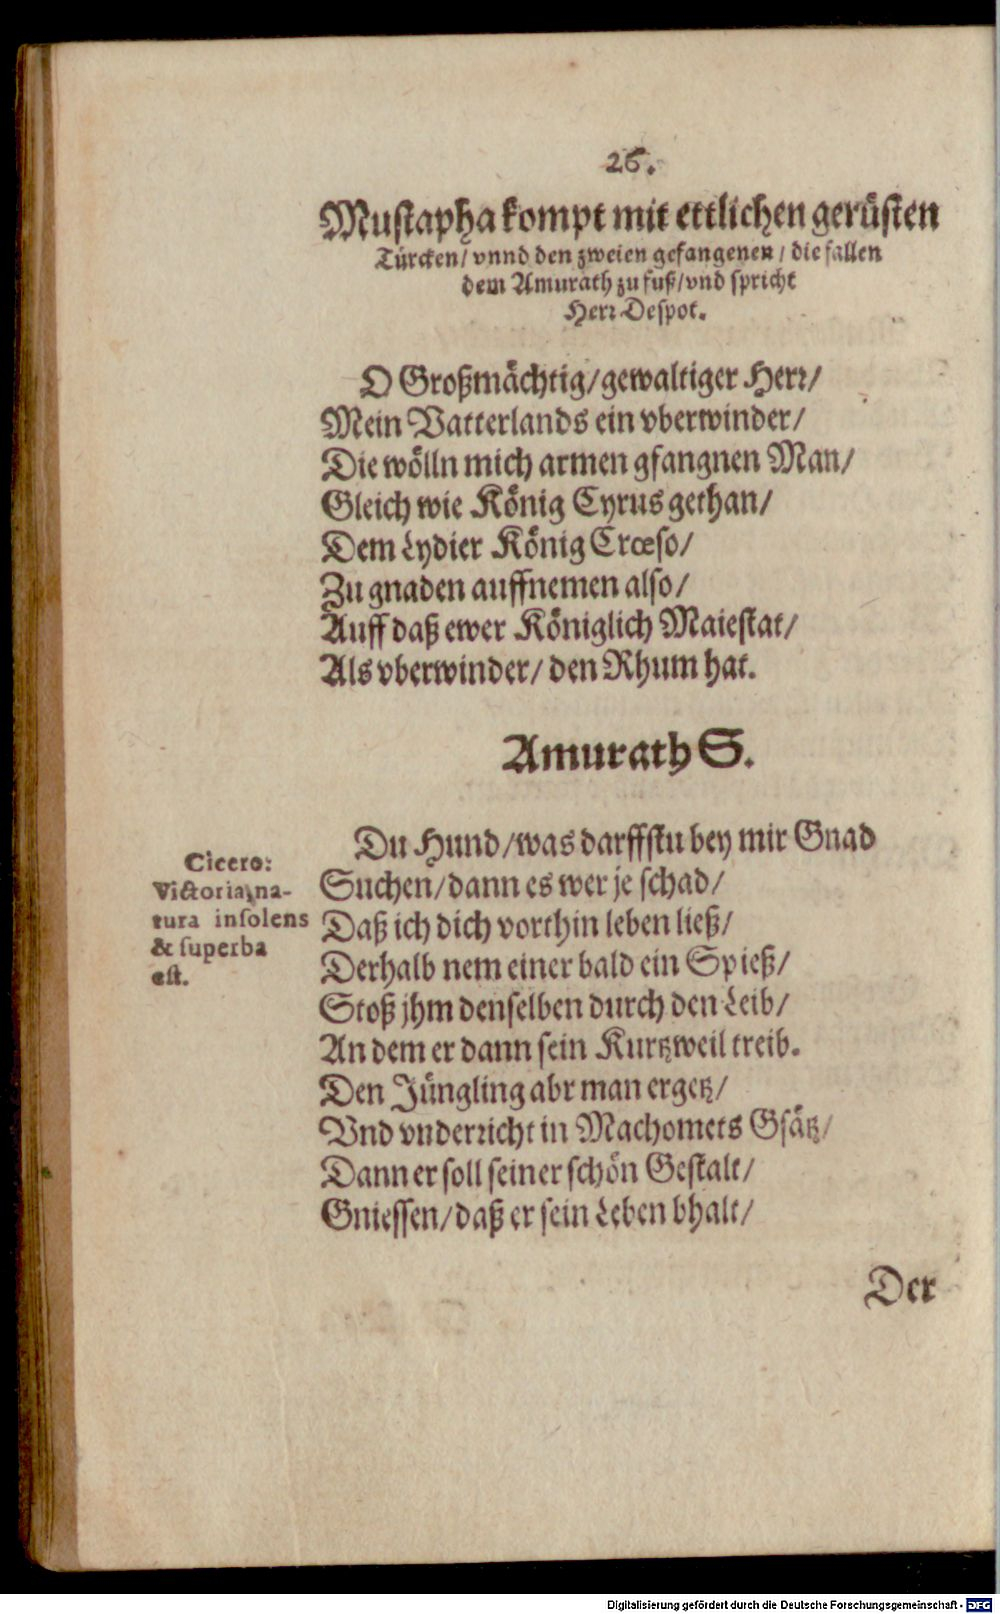 26.
Mustapha kompt mit ettlichen gerüsten
Türcken/ vnnd den zweien gefangenen/ die fallen
dem Amurath zu fuß/ vnd spricht
Herr Despot.
O Großmächtig/ gewaltiger Herr/
Mein Vatterlands ein vberwinder/
Die wölln mich armen gfangnen Man/
Gleich wie König Cyrus gethan/
Dem Lydier König Crœso/
Zu gnaden auffnemen also/
Auff daß ewer Königlich Maiestat/
Als vberwinder/ den Rhum hat.
Amurath S.
Du Hund/ was darffstu bey mir Gnad
Suchen/ dann es wer je schad/
Daß ich dich vorthin leben ließ/
Derhalb nem einer bald ein Spieß/
Stoß jhm denselben durch den Leib/
An dem er dann sein Kurtzweil treib.
Den Jüngling abr man ergetz/
Vnd vnderricht in Machomets Gsätz/
Dann er soll seiner schön Gestalt/
Gniessen/ daß er sein Leben bhalt/
Cicero:
Victoria, na-
tura insolens
& superba
est.
Der
Digitalisierung gefördert durch die Deutsche Forschungsgemeinschaft - DFG